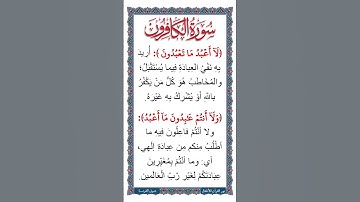 سورة الكافرون
﴿لَآ أَعْبُدُ مَا تَعْبُدُونَ﴾: أُرِيدَ
بِهِ نَفْيُ العِبَادَةِ فِيمَا يُسْتَقْبَلُ؛
وَالمُخَاطَبُ هُوَ كُلُّ مَنْ يَكْفُرُ
بِاللَّهِ أَوْ يُشْرِكُ بِهِ غَيْرَهُ
﴿وَلَآ أَنتُمْ عَٰبِدُونَ مَآ أَعْبُدُ﴾:
ولا أَنْتُمْ فَاعِلُونَ فِيهِ مَا
أَطْلُبُ مِنكم مِن عِبَادَةِ إِلَهِي،
أي: وما أَنْتُمْ بِمُغَيِّرِينَ
عِبَادَتَكُمْ لِغَيْرِ رَبِّ العَالَمِينَ.